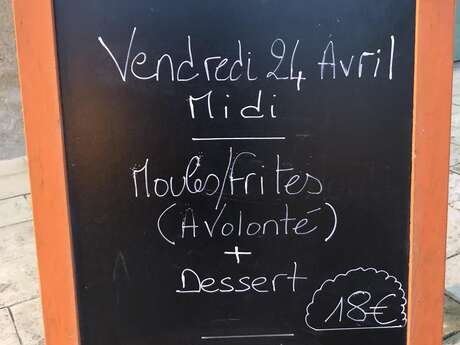 Vendredi 24 Avril
Midi
Moules/Frites
(A Volonté)
+
Dessert
18€